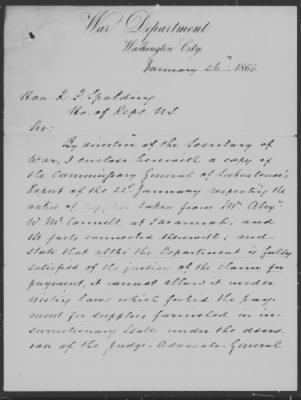 War Department
Washington City
January 26th 1866
Hon R. P. Spalding
Ho. of Reps U.S.
Sir:
By direction of the Secretary of
War, I enclose herewith a copy of
the Commissary General of Subsistence's
Report of the 22d January respecting the
value of supplies taken from Mr Alexr
W. McConnell at Savannah, and
the facts connected therewith; and
state that altho the Department is fully
satisfied of the justice of the claim for
payment, it cannot allow it under
existing laws which forbid the pay-
ment for supplies furnished in in-
surrectionary States under the decis-
ion of the Judge-Advocate-General